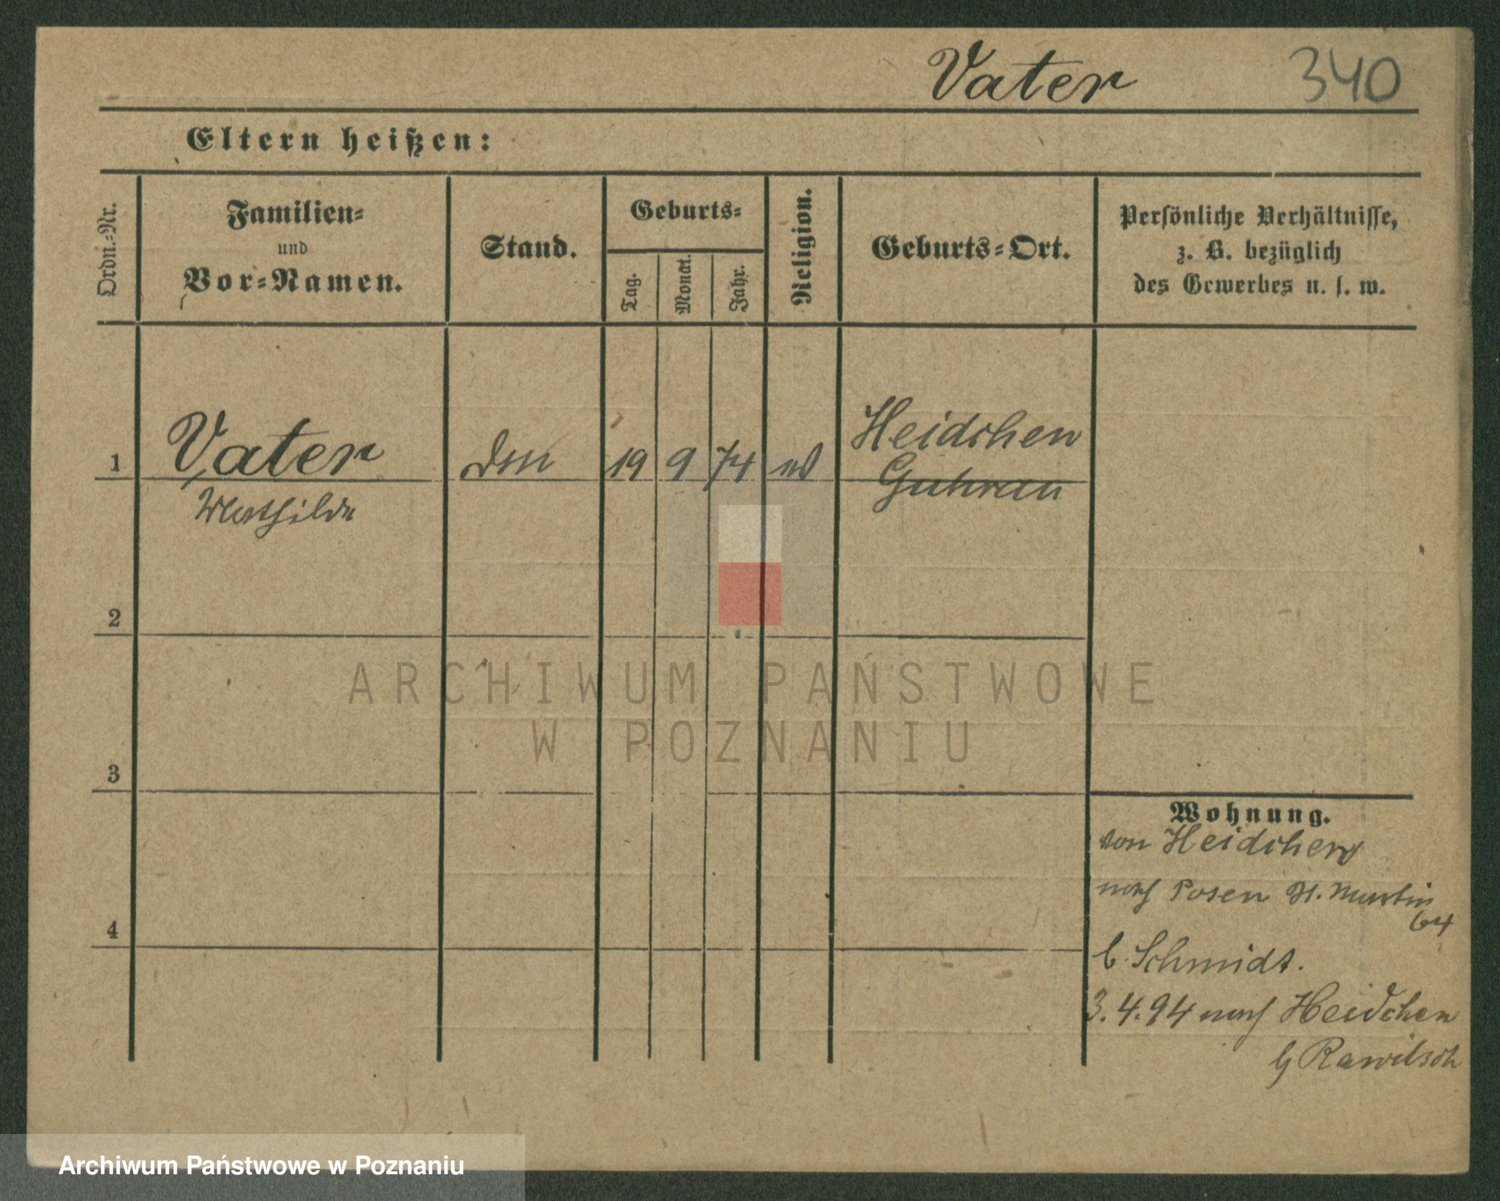 Vater 340
Eltern heißen:
Ordn.-Nr.
Familien-
und
Vor-Namen.
Stand.
Geburts-
Tag.
Monat.
Jahr.
Religion.
Geburts-Ort.
Persönliche Verhältnisse,
z. B. bezüglich
des Gewerbes u. s. w.
1 Vater 19 9 74 Heidchen
Mathilde Guhrau
2
3
4
ARCHIWUM PAŃSTWOWE
W POZNANIU
Wohnung.
von Heidchen
nach Posen St. Martin
64
b. Schmidt.
3.4.94 nach Heidchen
b Rawitsch
Archiwum Państwowe w Poznaniu